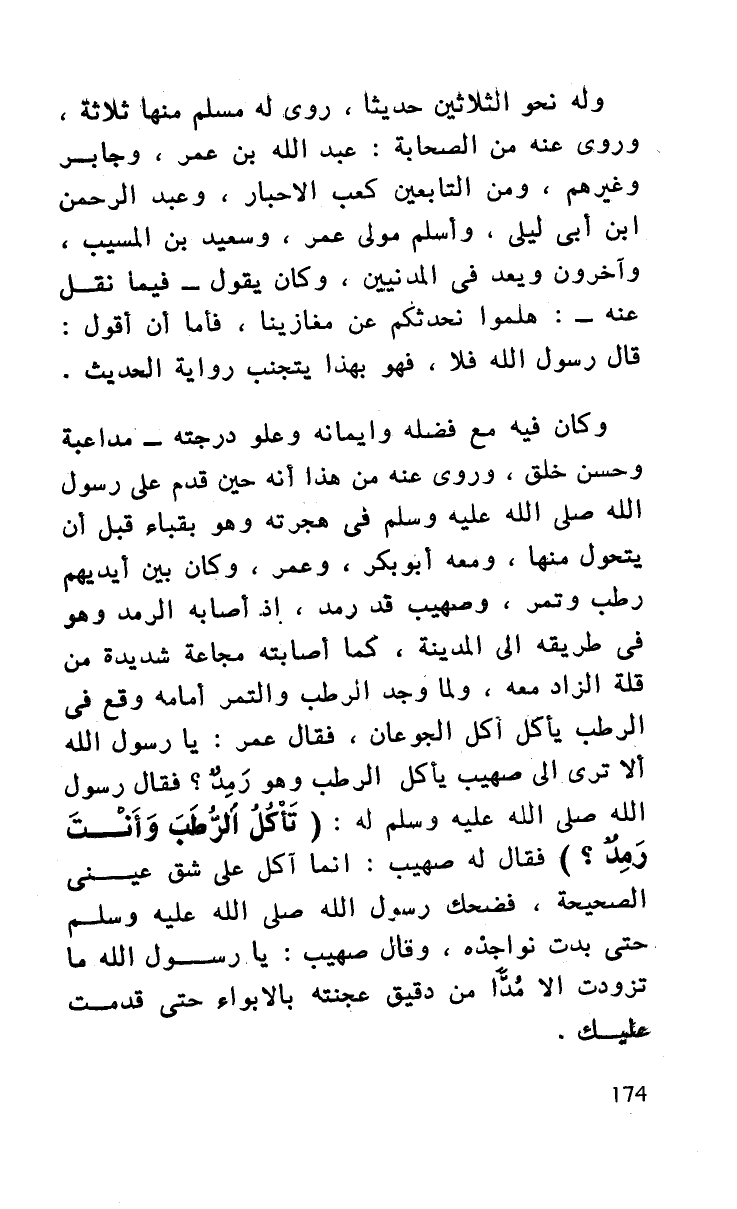 وله نحو الثلاثين حديثا ، روى له مسلم منها ثلاثة ،
وروى عنه من الصحابة : عبد الله بن عمر ، وجابــر
وغيرهم ، ومن التابعين كعب الاحبار ، وعبد الرحمن
ابن أبى ليلى ، وأسلم مولى عمر ، وسعيد بن المسيب ،
وآخرون ويعد فى المدنيين ، وكان يقول ــ فيما نقــل
عنه ــ : هلموا نحدثكم عن مغازينا ، فأما أن أقول :
قال رسول الله فلا ، فهو بهذا يتجنب رواية الحديث .
وكان فيه مع فضله وايمانه وعلو درجته ــ مداعبة
وحسن خلق ، وروى عنه من هذا أنه حين قدم على رسول
الله صلى الله عليه وسلم فى هجرته وهو بقباء قبل أن
يتحول منها ، ومعه أبوبكر ، وعمر ، وكان بين أيديهم
رطب وتمر ، وصهيب قد رمد ، إذ أصابه الرمد وهو
فى طريقه الى المدينة ، كما أصابته مجاعة شديدة من
قلة الزاد معه ، ولما وجد الرطب والتمر أمامه وقع فى
الرطب يأكل أكل الجوعان ، فقال عمر : يا رسول الله
ألا ترى الى صهيب يأكل الرطب وهو رَمِدٌ ؟ فقال رسول
الله صلى الله عليه وسلم له : ( تَأْكُلُ ٱلرُّطَبَ وَأَنْــتَ
رَمِدٌ ؟ ) فقال له صهيب : انما آكل على شق عيــنى
الصحيحة ، فضحك رسول الله صلى الله عليه وسلــم
حتى بدت نواجذه ، وقال صهيب : يا رســول الله ما
تزودت الا مُدًّا من دقيق عجنته بالابواء حتى قدمــت
عليــك .
174